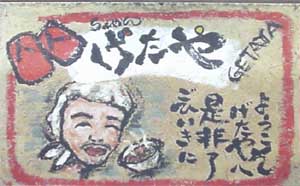 らぁめん
げたや
GETAYA
ようこそ
げたやへ
是非了
ごひいきに